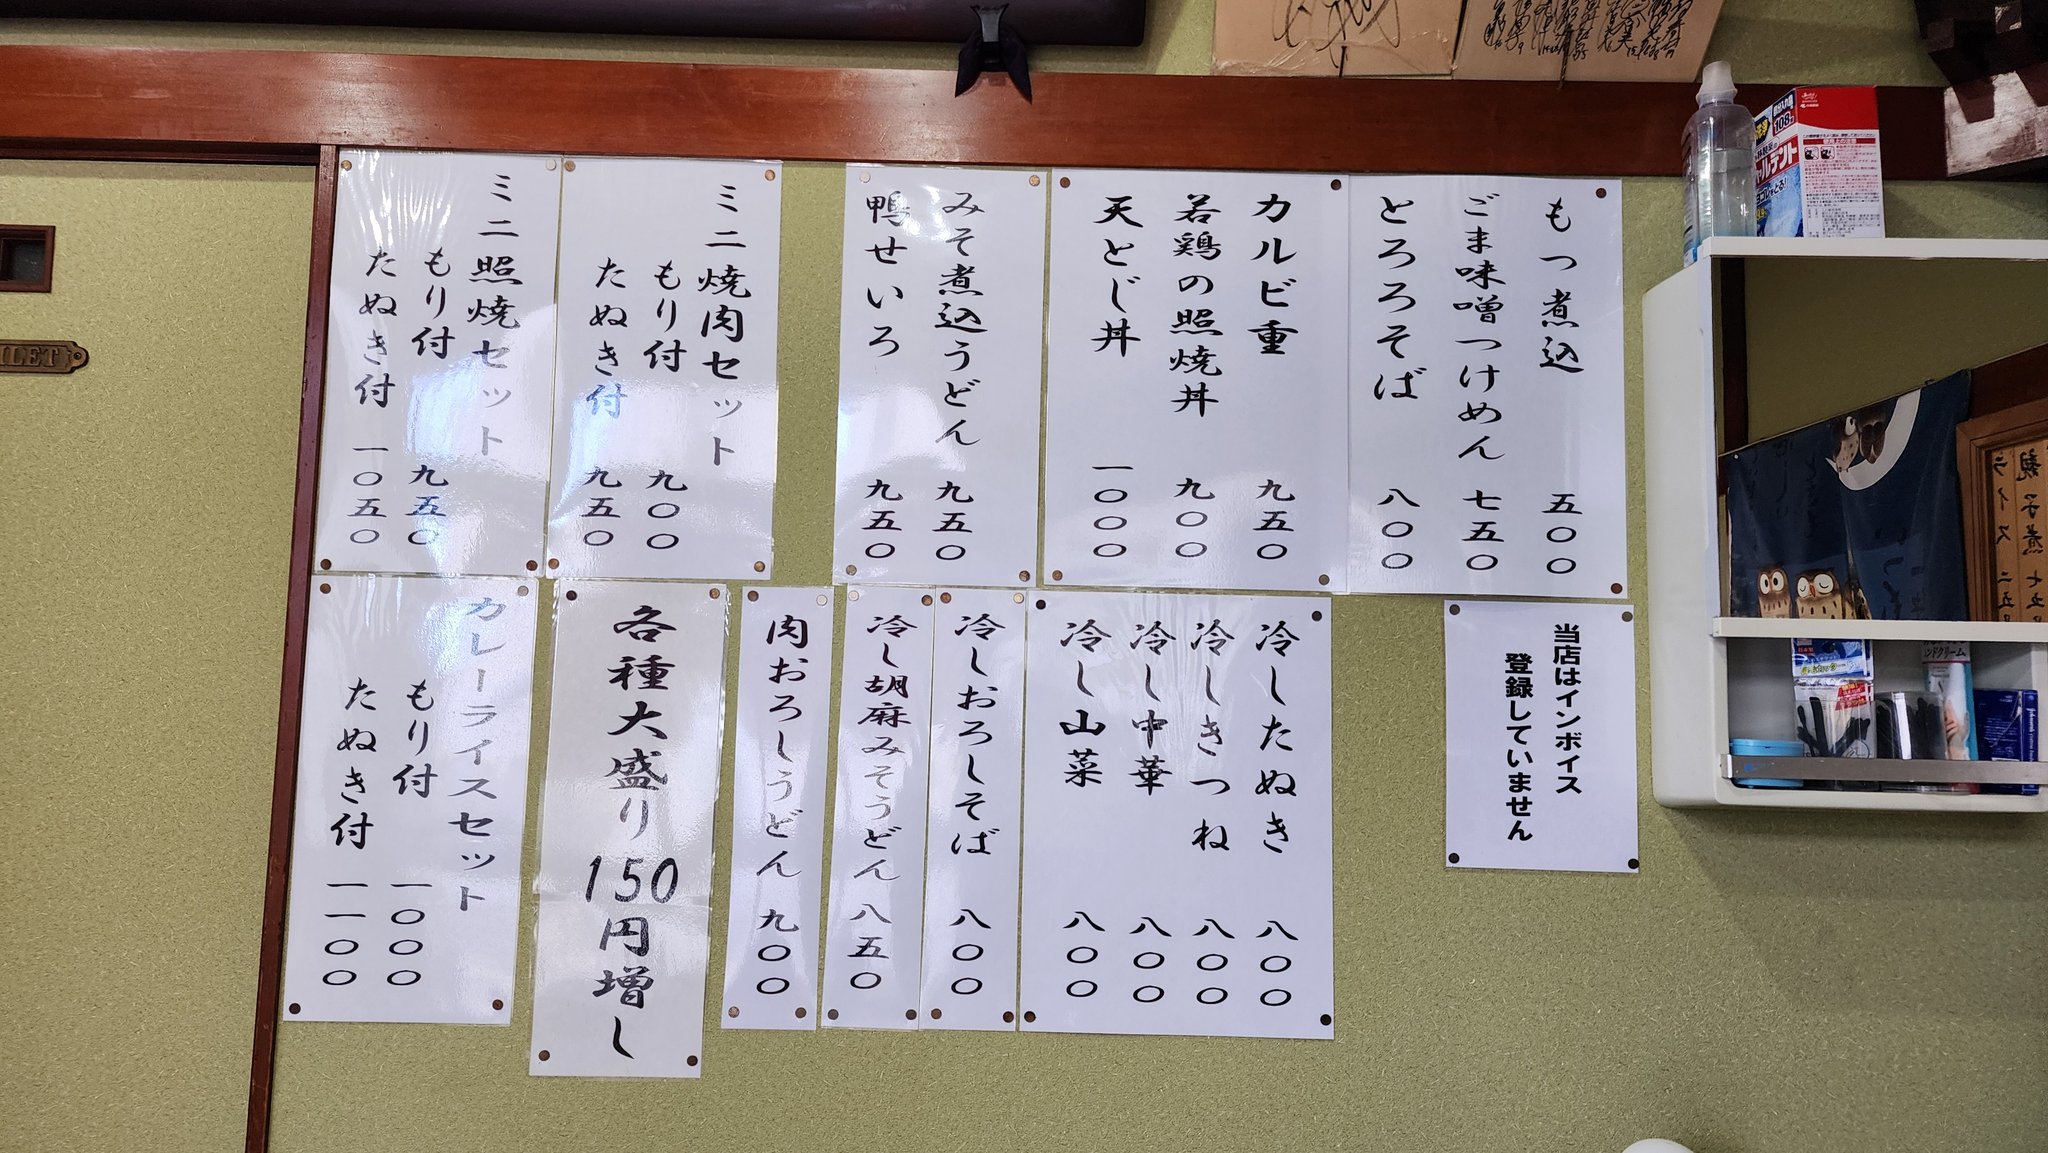 もつ煮込 五〇〇
ごま味噌つけめん 七五〇
とろろそば 八〇〇
カルビ重 九五〇
若鶏の照焼丼 九〇〇
天とじ丼 一〇〇〇
みそ煮込うどん 九五〇
鴨せいろ 九五〇
ミニ焼肉セット
もり付 九〇〇
たぬき付 九五〇
ミニ照焼セット
もり付 九五〇
たぬき付 一〇五〇
当店はインボイス
登録していません
冷したぬき 八〇〇
冷しきつね 八〇〇
冷し中華 八〇〇
冷し山菜 八〇〇
冷しおろしそば 八〇〇
冷し胡麻みそうどん 八五〇
肉おろしうどん 九〇〇
各種大盛り150円増し
カレーライスセット
もり付 一〇〇〇
たぬき付 一一〇〇
108